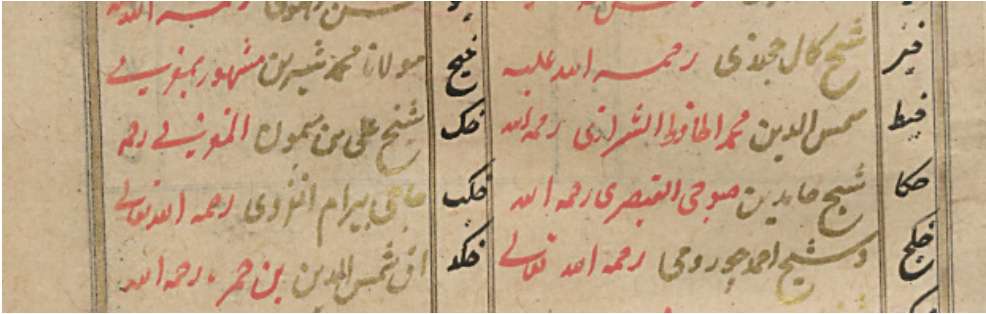 خیز شیخ كمال خجندی رحمه الله علیه خیح مولانا محمد شیرین مشهور بمغربی
خیط شمس الدین محمد الحافظ الشیرازی رحمه الله خك شیخ علی بن میمون المغربی رحمه
خكا شیخ حامد بن موسی القیصری رحمه الله خكب حاجی بیرام انقروی رحمه الله تعالی
خكج شیخ احمد رحمه الله تعالی خكد اق شمس الدین بن حمزه رحمه الله